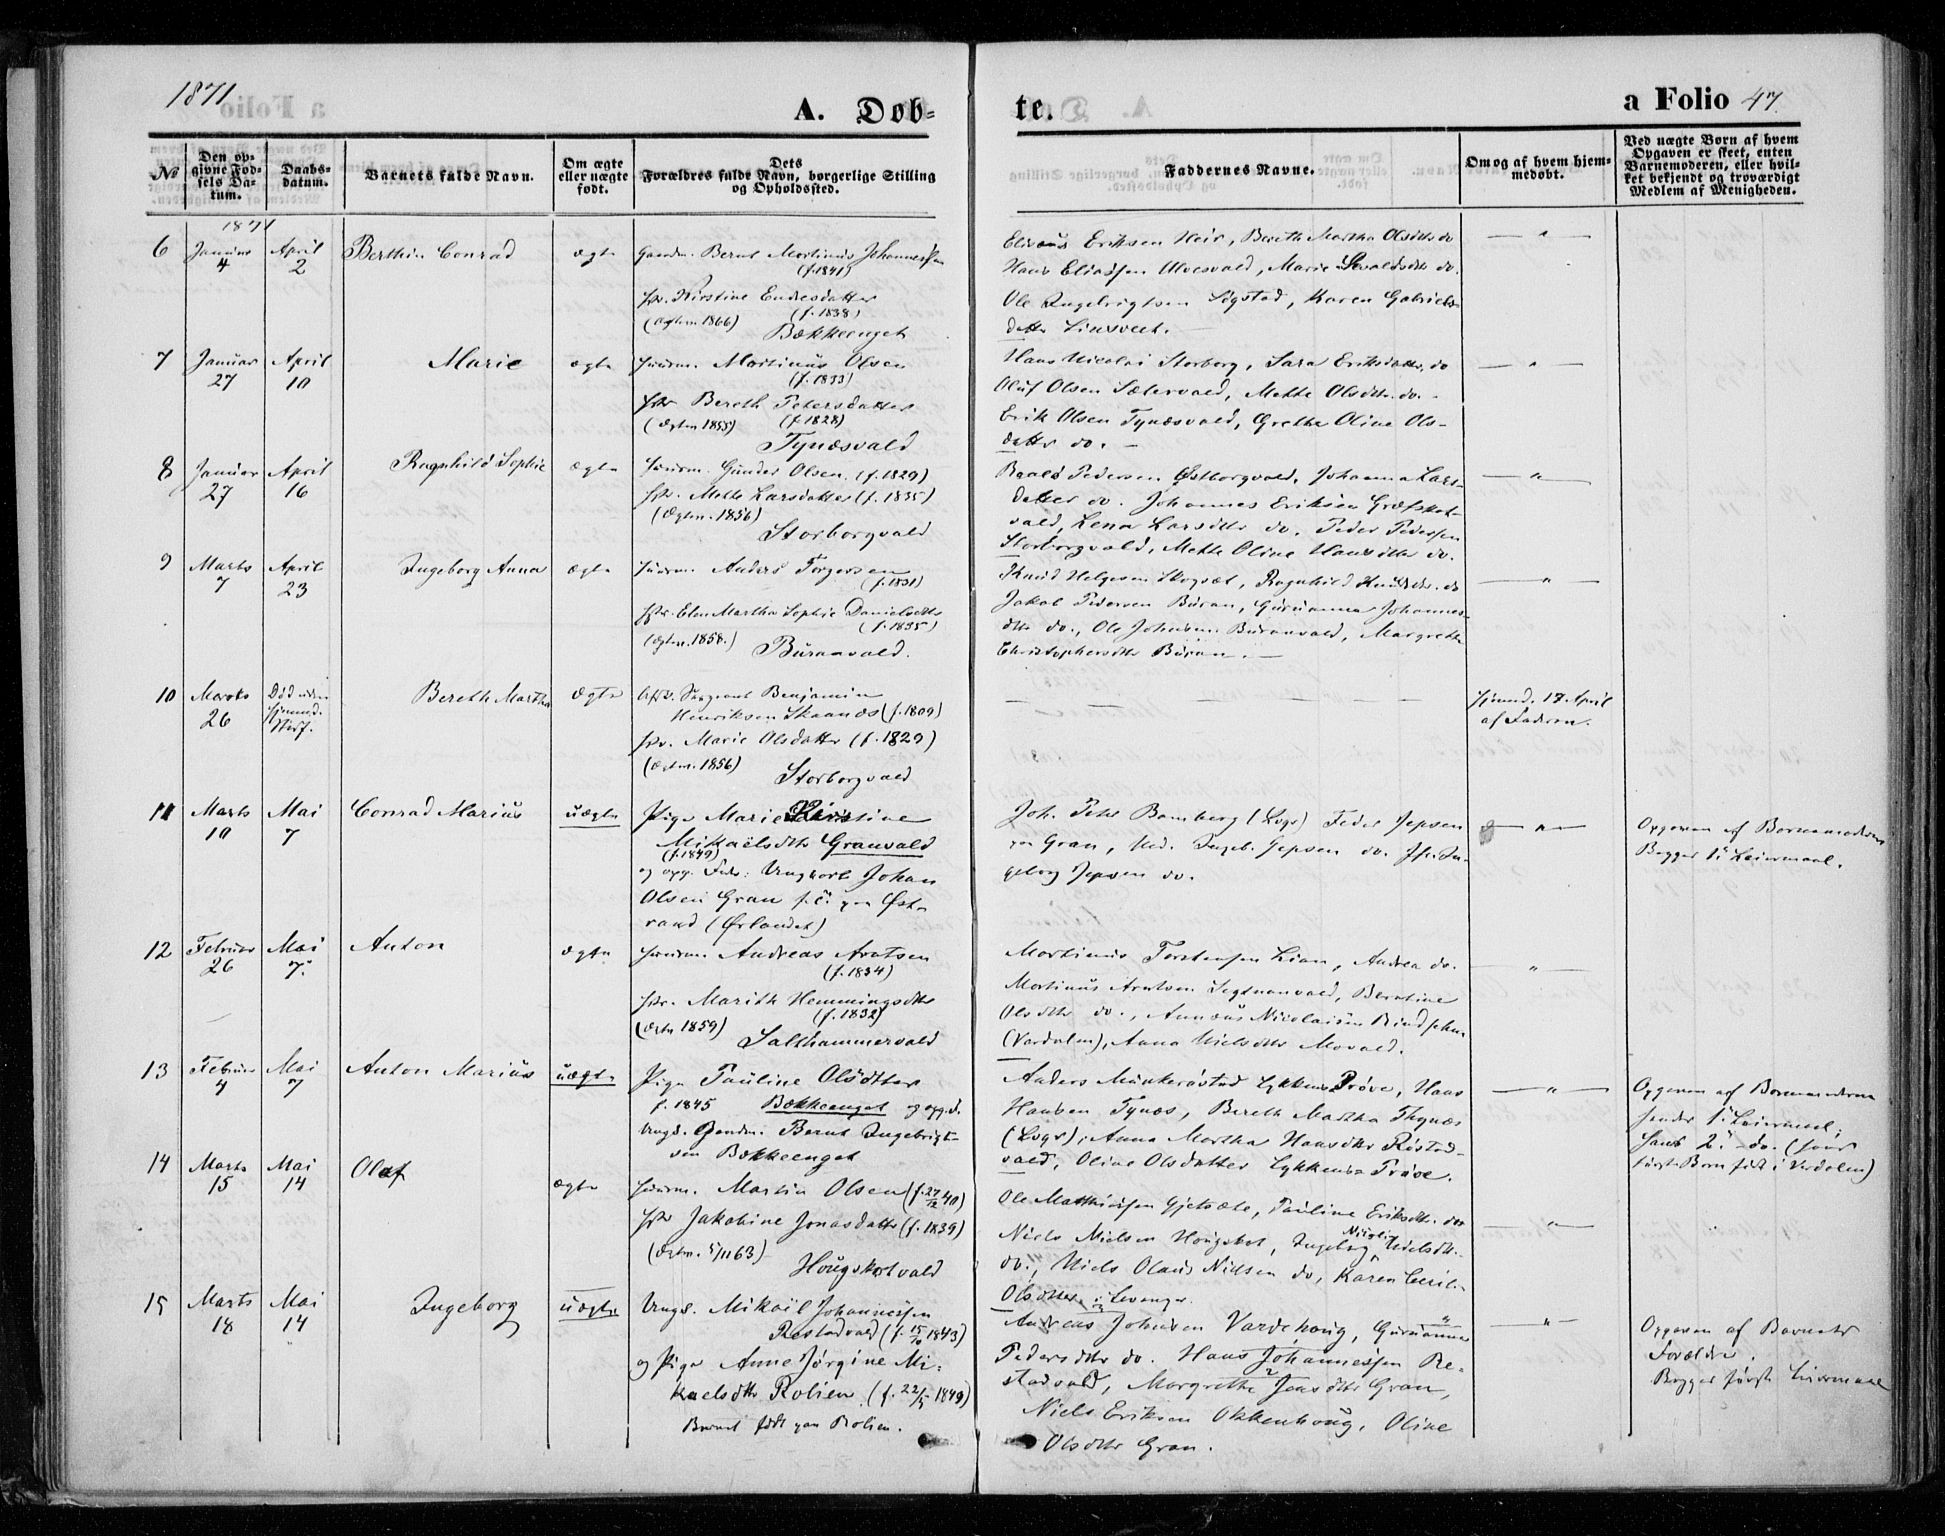 1871
A. Døb-
te.
a Folio 47.
No
Den opgivne Fødsels Datum.
Daabsdatum.
Barnets fulde Navn.
Om ægte eller uægte født.
Dets Forældres fulde Navn, borgerlige Stilling og Opholdssted.
Faddernes Navne.
Om og af hvem hjemmedøbt.
Ved uægte Børn af hvem Opgaven er skeet, enten Barnemoderen, eller hvilket bekjendt og troværdigt Medlem af Menigheden.
1871
6 Januar 4 April 2 Berthin Conrad ægte
Gaardm. Bernt Martinus Johannessen
(f. 1841)
Hstr. Kirstine Endresdatter
(f. 1838)
(Ægtem. 1866)
Bækkeenget
Eriksen Heir, Bereth Martha Olsdtr do
Hans Eliassen Ulvesvald, Marie Sivaldsdtr do.
Ole Ingebrigtsen Sigstad, Karen Gabriels-
datter
7 Januar 27 April 10 Marie ægte
Huusm. Martinus Olsen
(f. 1833)
Hstr Bereth Petersdatter
(Ægtem 1855) (f. 1828)
Tynæsvald
Hans Nicolai Storborg, Sara Eriksdatter do
Oluf Olsen Sætervald, Mette Olsdtr. do.
Erik Olsen Tynæsvald, Grethe Oline Ols-
datter do.
8 Januar 27 April 16 Ragnhild Sophie ægte
Huusm. Gunder Olsen (f. 1829)
Hstr. Mette Larsdatter (f. 1835)
(Ægtem. 1856)
Storborgvald
Pedersen Østborgvald, Johanna Lars-
datter do. Johannes Eriksen Græfskot-
vald, Lena Larsdtr do. Peder Pedersen
Storborgvald, Mette Oline Hansdtr do.
9 Marts 7 April 23 Ingeborg Anna ægte
Huusm. Anders Torgersen
(f. 1831)
Hstr. Elen Martha Sophie Danielsdtr
(f. 1835)
(Ægtem. 1858.)
Buranvald.
Knud Helgesen Skogset, Ragnhild Knudsdtr. do
Jakob Pedersen Buran, Guruanna Johannes-
dtr do., Ole Johnsen Buranvald, Margrethe
Christophersdtr Buran.
10 Marts 26 Død uden
Bereth Martha ægte
Sergeant Benjamin
Henriksen Skaanes (f. 1809)
Hstr. Marie Olsdatter (f. 1829)
(Ægtem. 1856)
Storborgvald
Hjemmed. 17 April
af Faderen.
11 Marts 10 Mai 7 Conrad Marius uægte
Pige Marie Kirstine
Mikaelsdtr Granvald
(f. 1849)
og opg. Fader: Ungkarl Johan
Olsen Gran f. t. paa Øst-
raad (Ørlandet)
Joh. Peter Bamberg (Lvgr) Peder Jepsen
paa Gran, Ingeb. Jepsen do. Jfr. In-
geborg Jepsen do.
Opgaven af Barnemoderen
Begges 1ste Leiermaal.
12 Februar 26 Mai 7. Anton ægte
Huusm. Andreas Arntsen
(f. 1834)
Hstr. Marith Hemmingsdtr
(f. 1832)
(Ægtem 1859)
Salthammervald
Martinus Torstensen Lian, Andrea do.
Martinus Arntsen Segtnanvald, Berntine
Olsdtr do., Annæus Nicolaisen Rindsem
(Værdalen), Anna Nielsdtr Movald.
13 Februar 4 Mai 7 Anton Marius uægte
Pige Pauline Olsdtter
f. 1845 Bækkeenget og opg. F.
Ungk. Gaardm. Bernt Ingebrigt-
sen Bækkeenget
Anders Munkerøstad Lykkens Prøve, Hans
Hansen Tynæs, Bereth Martha Thynæs
(Lvgr), Anna Martha Hansdtr Røstad-
vald, Oline Olsdatter Lykkens Prøve.
Opgaven af Barnemoderen
hendes 1ste Leiermaal;
hans 2det do. (hans
første Barn født i Værdalen)
14 Marts 15 Mai 14 Olaf ægte
Huusm. Martin Olsen (f. 27/12 40)
Hstr Jakobine Jonasdatter (f. 1839)
(Ægtem. 5/11 63)
Hougskotvald
Ole Matthiassen Gjetsete, Pauline Eriksdtr. do
Niels Nielsen Hougskot, Ingeborg Nicoline Nielsdtr.
do., Niels Olaus Nilsen do, Karen Ceril.
Olsdtter i Levanger.
15 Marts 18 Mai 14 Ingeborg uægte
Ungk. Mikael Johannessen
Røstadvald (f. 15/10 1843)
og Pige Anne Jørgine Mi-
kaelsdtr Rolien (f. 22/5 1849)
Barnet født paa Rolien.
Andreas Johnsen Vardehoug, Guruanna
Pedersdtr do. Hans Johannessen Rø-
stadvald, Margrethe Jensdtr Gran,
Niels Eriksen Okkenhoug, Oline
Olsdtr Gran.
Opgaven af Barnets
Forældre.
Begges første Leiermaal